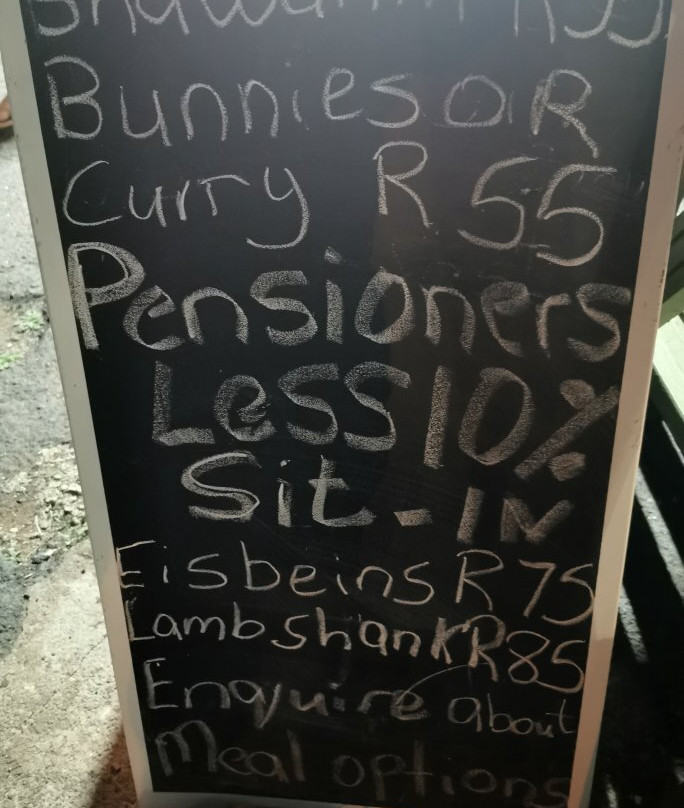 Shawarma R55
Bunnies OR
Curry R 55
Pensioners
Less 10%
Sit - IN
Eisbeins R 75
Lamb shank R85
Enquire about
Meal options